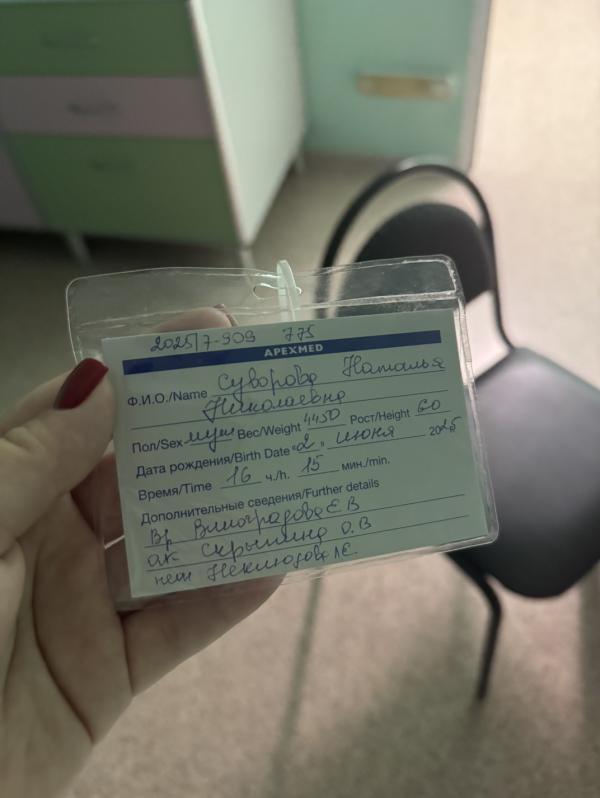 2025/7-909 775
APEXMED
Ф.И.О./Name Суворова Наталья
Николаевна
Пол/Sex муж Вес/Weight 4450 Рост/Height 60
Дата рождения/Birth Date "2" июня 2025
Время/Time 16 ч./h. 15 мин./min.
Дополнительные сведения/Further details
Вр Виноградова Е.В
ак Скрыпина О.В
неон Неклюдова Л.Е.